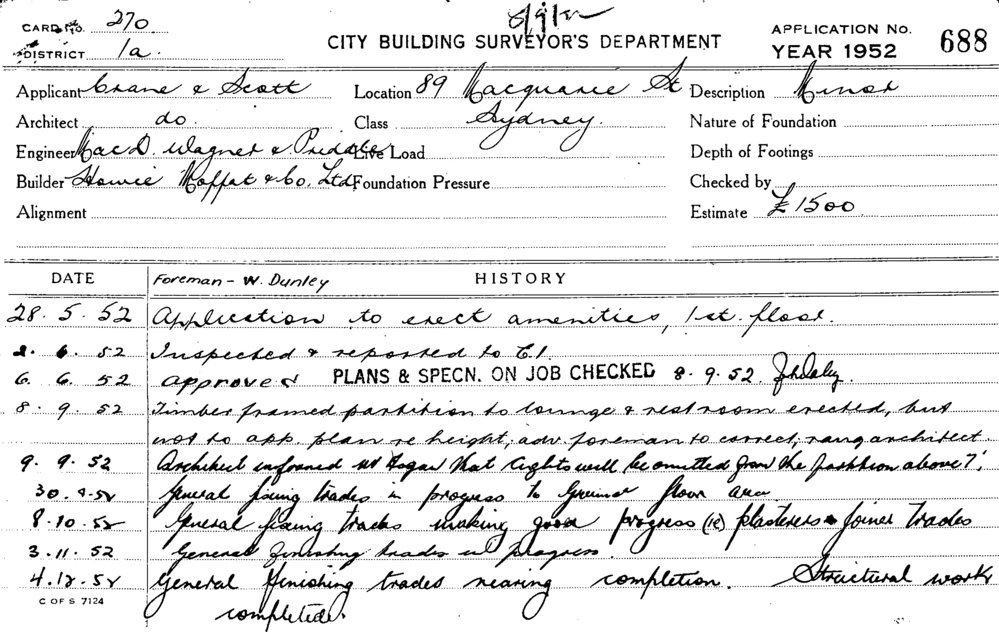 CARD No. 270
8/9/52
CITY BUILDING SURVEYOR'S DEPARTMENT
APPLICATION No. 688
DISTRICT 1a.
YEAR 1952
Applicant Crane & Scott Location 89 Macquarie St Description Minor
Architect do. Class Sydney. Nature of Foundation
Engineer MacD. Wagner & Priddle Live Load Depth of Footings
Builder Howie Moffat & Co. Ltd. Foundation Pressure Checked by
Alignment Estimate £1500
DATE Foreman - W. Dunley HISTORY
28. 5. 52 Application to erect amenities, 1st. floor.
2. 6. 52 Inspected & reported to C.I.
6. 6. 52 approved PLANS & SPECN. ON JOB CHECKED 8. 9. 52. Daly.
8. 9. 52 Timber framed partition to lounge & rest room erected, but
not to app. plan re height, adv. foreman to correct, rang architect
9. 9. 52 Architect informed that lights will be omitted from the partition above 7'
30. 9. 52 General fixing trades in progress to floor area
8. 10. 52 General fixing trades making good progress (ie) plasterers Joiner trades
3. 11. 52 General finishing trades in progress.
4. 12. 52 General finishing trades nearing completion. Structural work
C OF S 7124
completed.